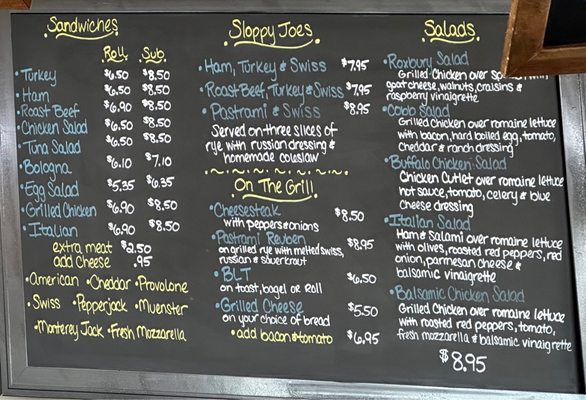 Sandwiches
Roll Sub
Turkey $6.50 $8.50
Ham $6.50 $8.50
Roast Beef $6.90 $8.50
Chicken Salad $6.50 $8.50
Tuna Salad $6.50 $8.50
Bologna $6.10 $7.10
Egg Salad $5.35 $6.35
Grilled Chicken $6.90 $8.50
Italian $6.90 $8.50
extra meat $2.50
add cheese .95
American • Cheddar • Provolone
Swiss • Pepperjack • Muenster
Monterey Jack • Fresh Mozzarella
Sloppy Joes
Ham, Turkey & Swiss $7.95
Roast Beef, Turkey & Swiss $7.95
Pastrami & Swiss $8.95
Served on three slices of
rye with russian dressing &
homemade coleslaw
On The Grill
Cheesesteak $8.50
with peppers & onions
Pastrami Reuben $8.95
on grilled rye with melted swiss,
russian & sauerkraut
BLT $6.50
on toast, bagel or Roll
Grilled Cheese $5.50
on your choice of bread
• add bacon & tomato $6.95
Salads
Roxbury Salad
Grilled Chicken over
goat cheese, walnuts, craisins &
raspberry vinaigrette
Cobb Salad
Grilled Chicken over romaine lettuce
with bacon, hard boiled egg, tomato,
cheddar & ranch dressing
Buffalo Chicken Salad
Chicken Cutlet over romaine lettuce
hot sauce, tomato, celery & blue
cheese dressing
Italian Salad
Ham & Salami over romaine lettuce
with olives, roasted red peppers, red
onion, parmesan cheese &
balsamic vinaigrette
Balsamic Chicken Salad
Grilled Chicken over romaine lettuce
with roasted red peppers, tomato,
fresh mozzarella & balsamic vinaigrette
$8.95